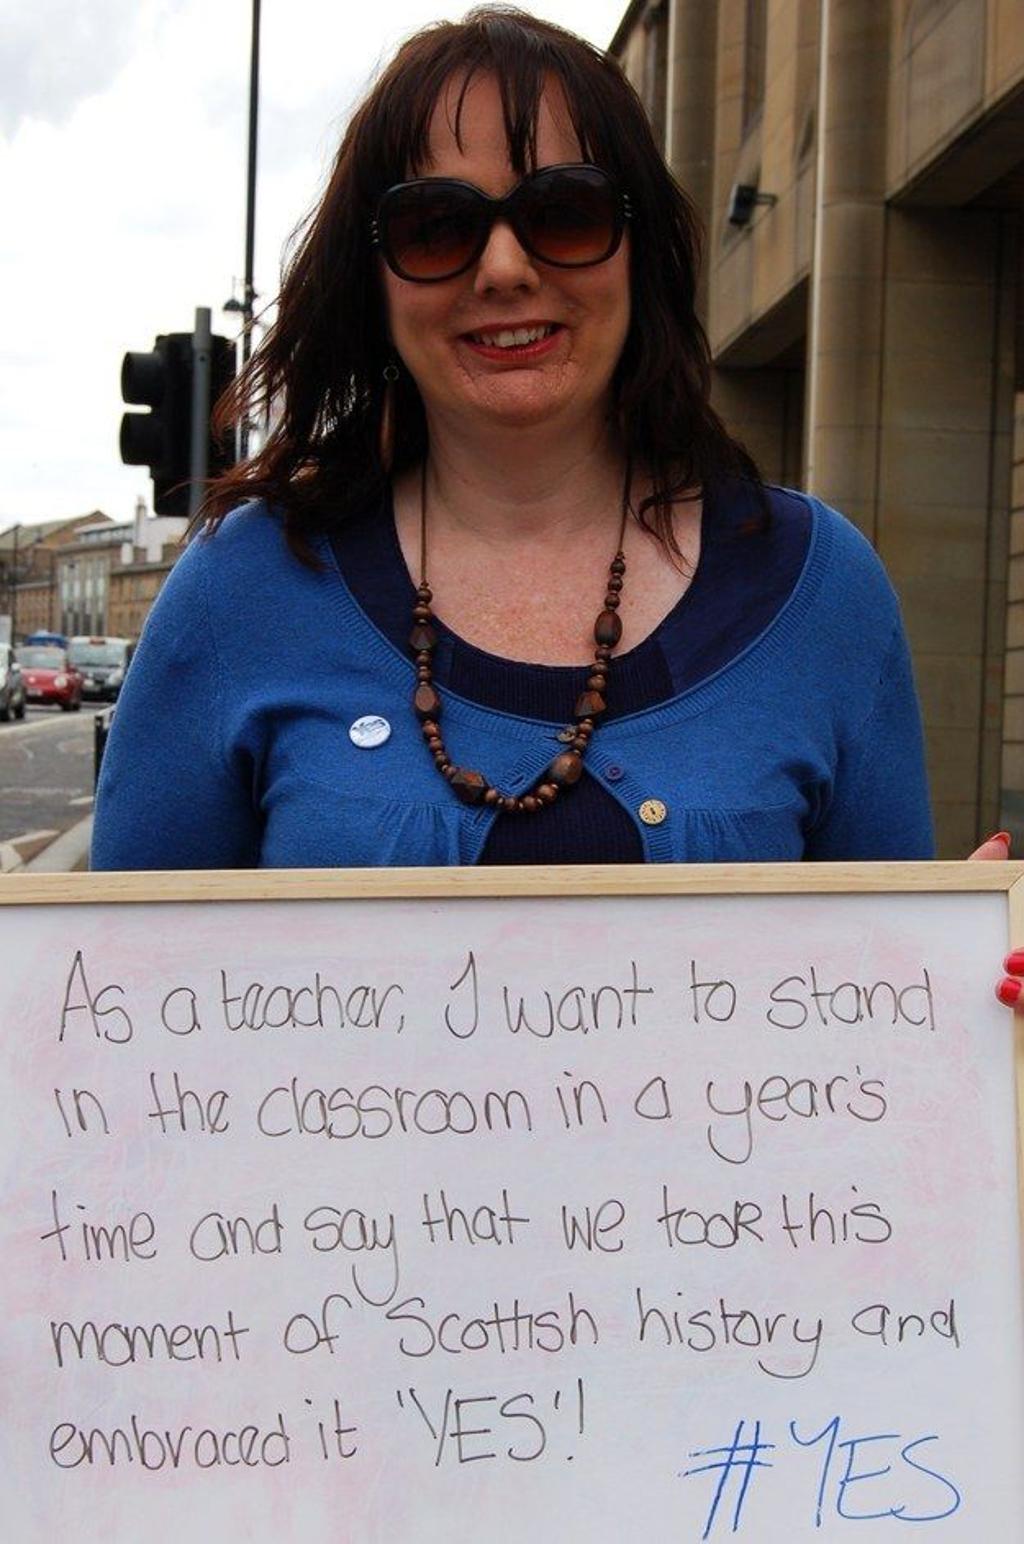 Yes
As a teacher, I want to stand
in the classroom in a year's
time and say that we took this
moment of Scottish history and
embraced it 'YES'!
#YES